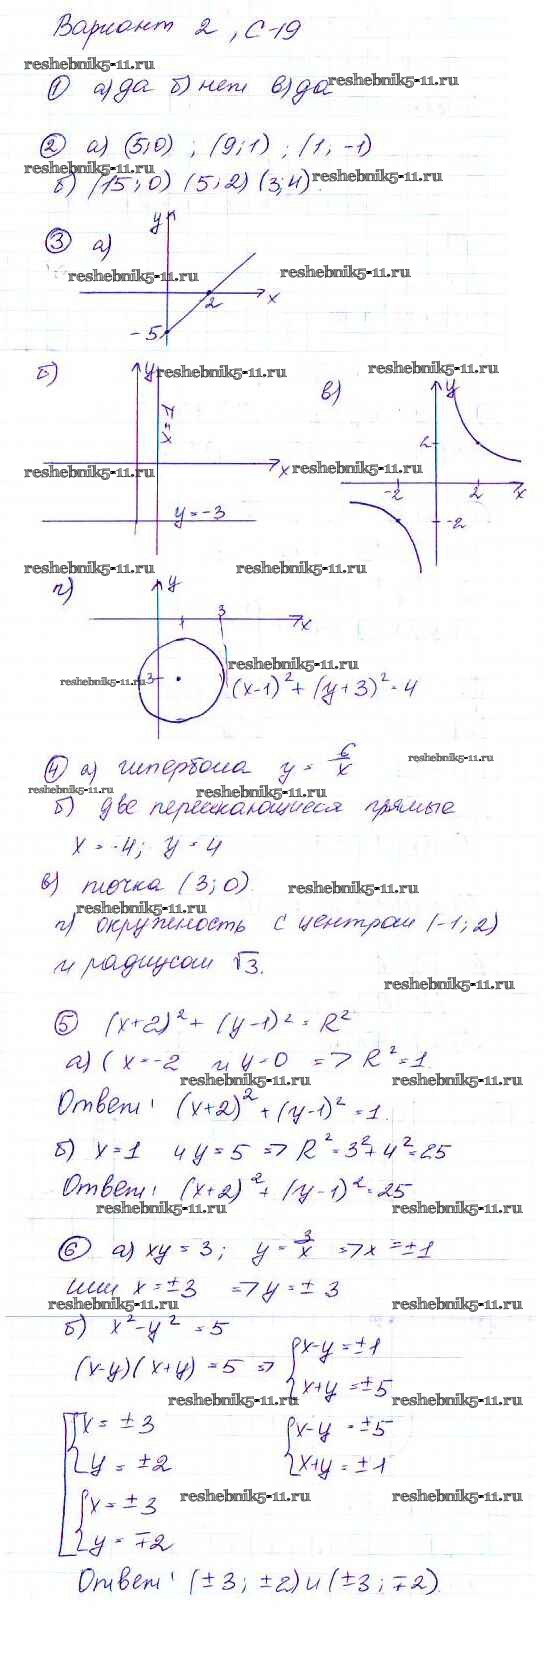 Вариант 2, С-19
reshebnik5-11.ru
① а) да б) нет в) да
reshebnik5-11.ru
② а) (5;0) ; (9;1) ; (1; -1)
reshebnik5-11.ru
reshebnik5-11.ru
б) (15; 0) (5; 2) (3; 4).
③ а)
y
reshebnik5-11.ru
reshebnik5-11.ru
2
x
-5
б)
y
reshebnik5-11.ru
x=1
x
reshebnik5-11.ru
y=-3
reshebnik5-11.ru
в)
reshebnik5-11.ru
y
2
reshebnik5-11.ru
-2
2
x
-2
reshebnik5-11.ru
г)
y
1
3
x
reshebnik5-11.ru
reshebnik5-11.ru
-3
(x-1)² + (y+3)² = 4
④ а) гипербола y = 6/x
reshebnik5-11.ru
reshebnik5-11.ru
reshebnik5-11.ru
б) две пересекающиеся прямые
x = -4; y = 4
в) точка (3; 0).
reshebnik5-11.ru
reshebnik5-11.ru
г) окружность с центром (-1; 2)
и радиусом √3.
reshebnik5-11.ru
⑤ (x+2)² + (y-1)² = R²
а) ( x=-2 и y=0 => R²=1.
reshebnik5-11.ru
reshebnik5-11.ru
Ответ: (x+2)² + (y-1)² = 1.
б) x=1 и y=5 => R²=3²+4²=25
Ответ: (x+2)² + (y-1)² = 25
reshebnik5-11.ru
reshebnik5-11.ru
⑥ а) xy = 3; y = 3/x => x = ±1
или x = ±3 => y = ± 3
reshebnik5-11.ru
reshebnik5-11.ru
б) x² - y² = 5
(x-y)(x+y) = 5 => { x-y = ±1
x+y = ±5
reshebnik5-11.ru
reshebnik5-11.ru
x = ±3
y = ±2
x-y = ±5
x+y = ±1
x = ±3
y = ∓2
reshebnik5-11.ru
reshebnik5-11.ru
Ответ: (±3; ±2) и (±3; ∓2).